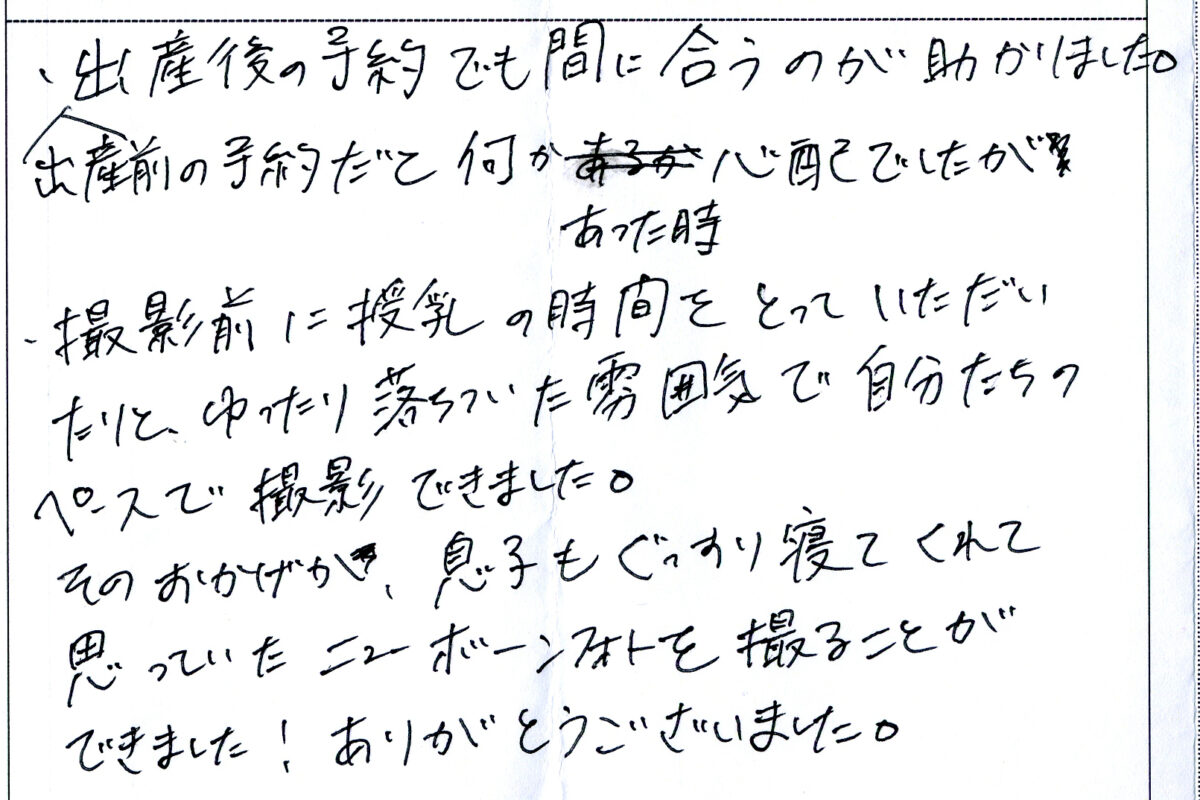 ・出産後の予約でも間に合うのが助かりました。
出産前の予約だと何かあるか心配でしたが
あった時
・撮影前に授乳の時間をとっていただい
たりと、ゆったり落ちついた雰囲気で自分たちの
ペースで撮影できました。
そのおかげか、息子もぐっすり寝てくれて
思っていたニューボーンフォトを撮ることが
できました！ありがとうございました。